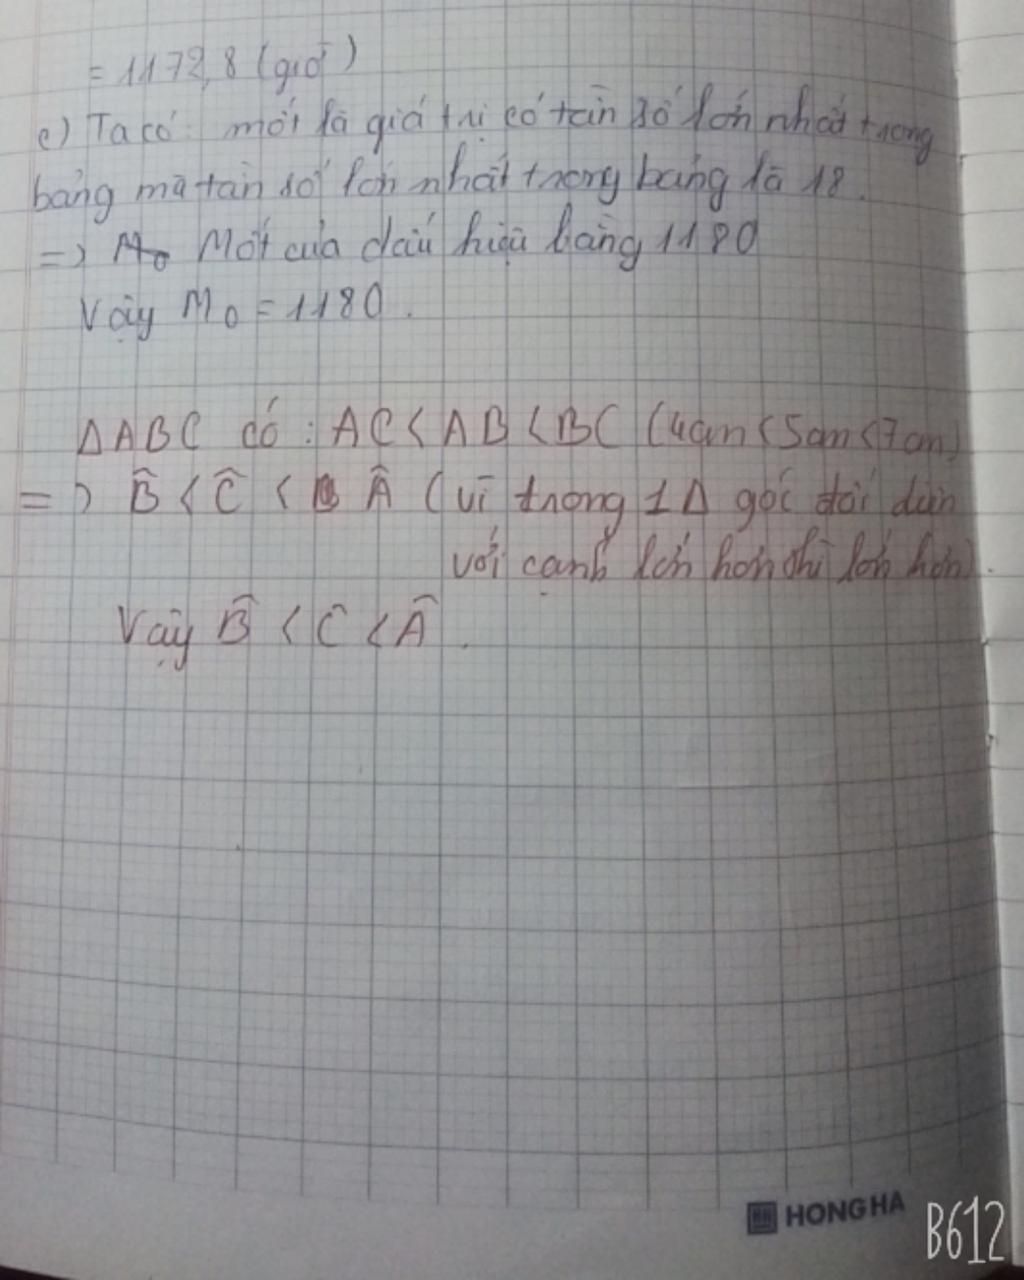 = 1172,8 (giờ)
c) Ta có: mốt là giá trị có tần số lớn nhất trong
bảng mà tần số lớn nhất trong bảng là 18.
=> M₀ Mốt của dấu hiệu bằng 1180
Vậy M₀ = 1180.
ΔABC có: AC < AB < BC (4cm < 5cm < 7cm)
=> B̂ < Ĉ < Â (vì trong 1Δ góc đối diện
với cạnh lớn hơn thì lớn hơn).
Vậy B̂ < Ĉ < Â.
HONG HA
B612